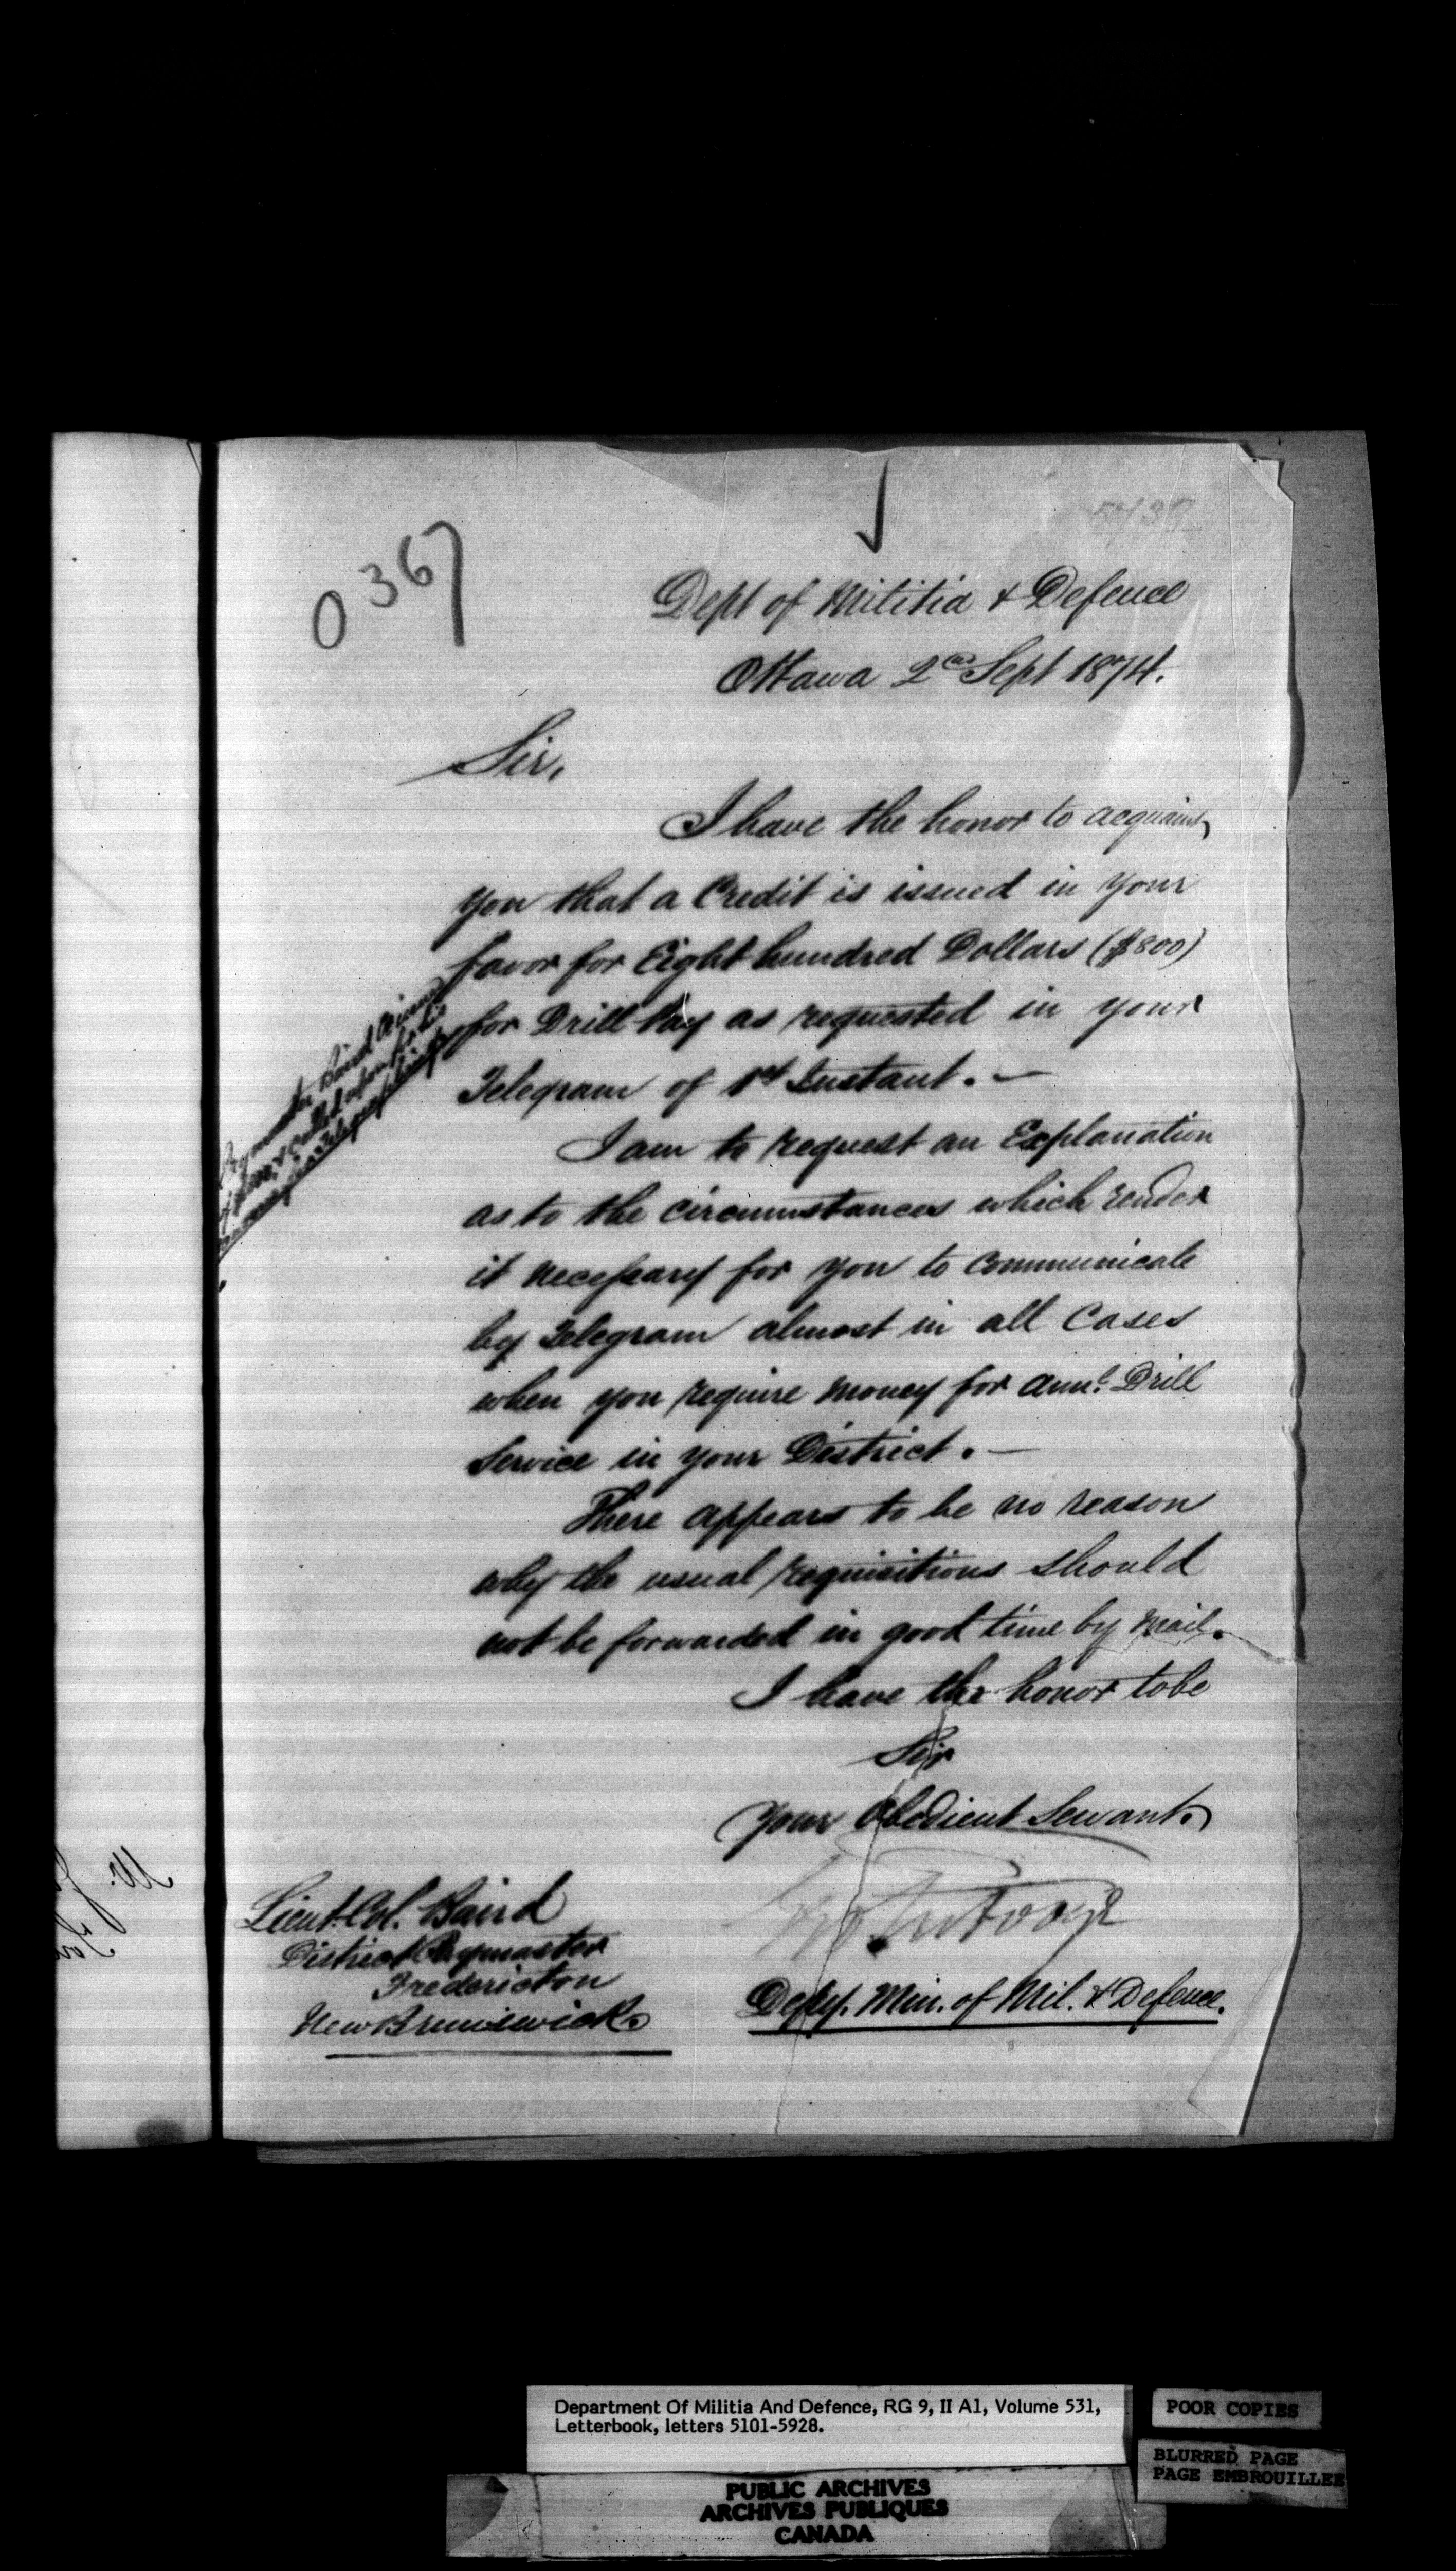 0367
Dept of Militia & Defence
Ottawa 2nd Sept 1874.
Sir,
I have the honor to acquaint
you that a Credit is issued in your
favor for Eight hundred Dollars ($800)
for Drill Pay as requested in your
Telegram of 1st Instant. —
I am to request an Explanation
as to the circumstances which render
it necessary for you to communicate
by Telegram almost in all Cases
when you require money for Annl. Drill
Service in your District. —
There appears to be no reason
why the usual requisitions should
not be forwarded in good time by mail.
I have the honor to be
Sir
Your Obedient Servant.
Depy. Min. of Mil. & Defence.
Lieut. Col. Baird
District Paymaster
Fredericton
New Brunswick.
Paymaster Baird
& called upon for his
telegraphing
Department Of Militia And Defence, RG 9, II A1, Volume 531,
Letterbook, letters 5101-5928.
POOR COPIES
BLURRED PAGE
PAGE EMBROUILLEE
PUBLIC ARCHIVES
ARCHIVES PUBLIQUES
CANADA